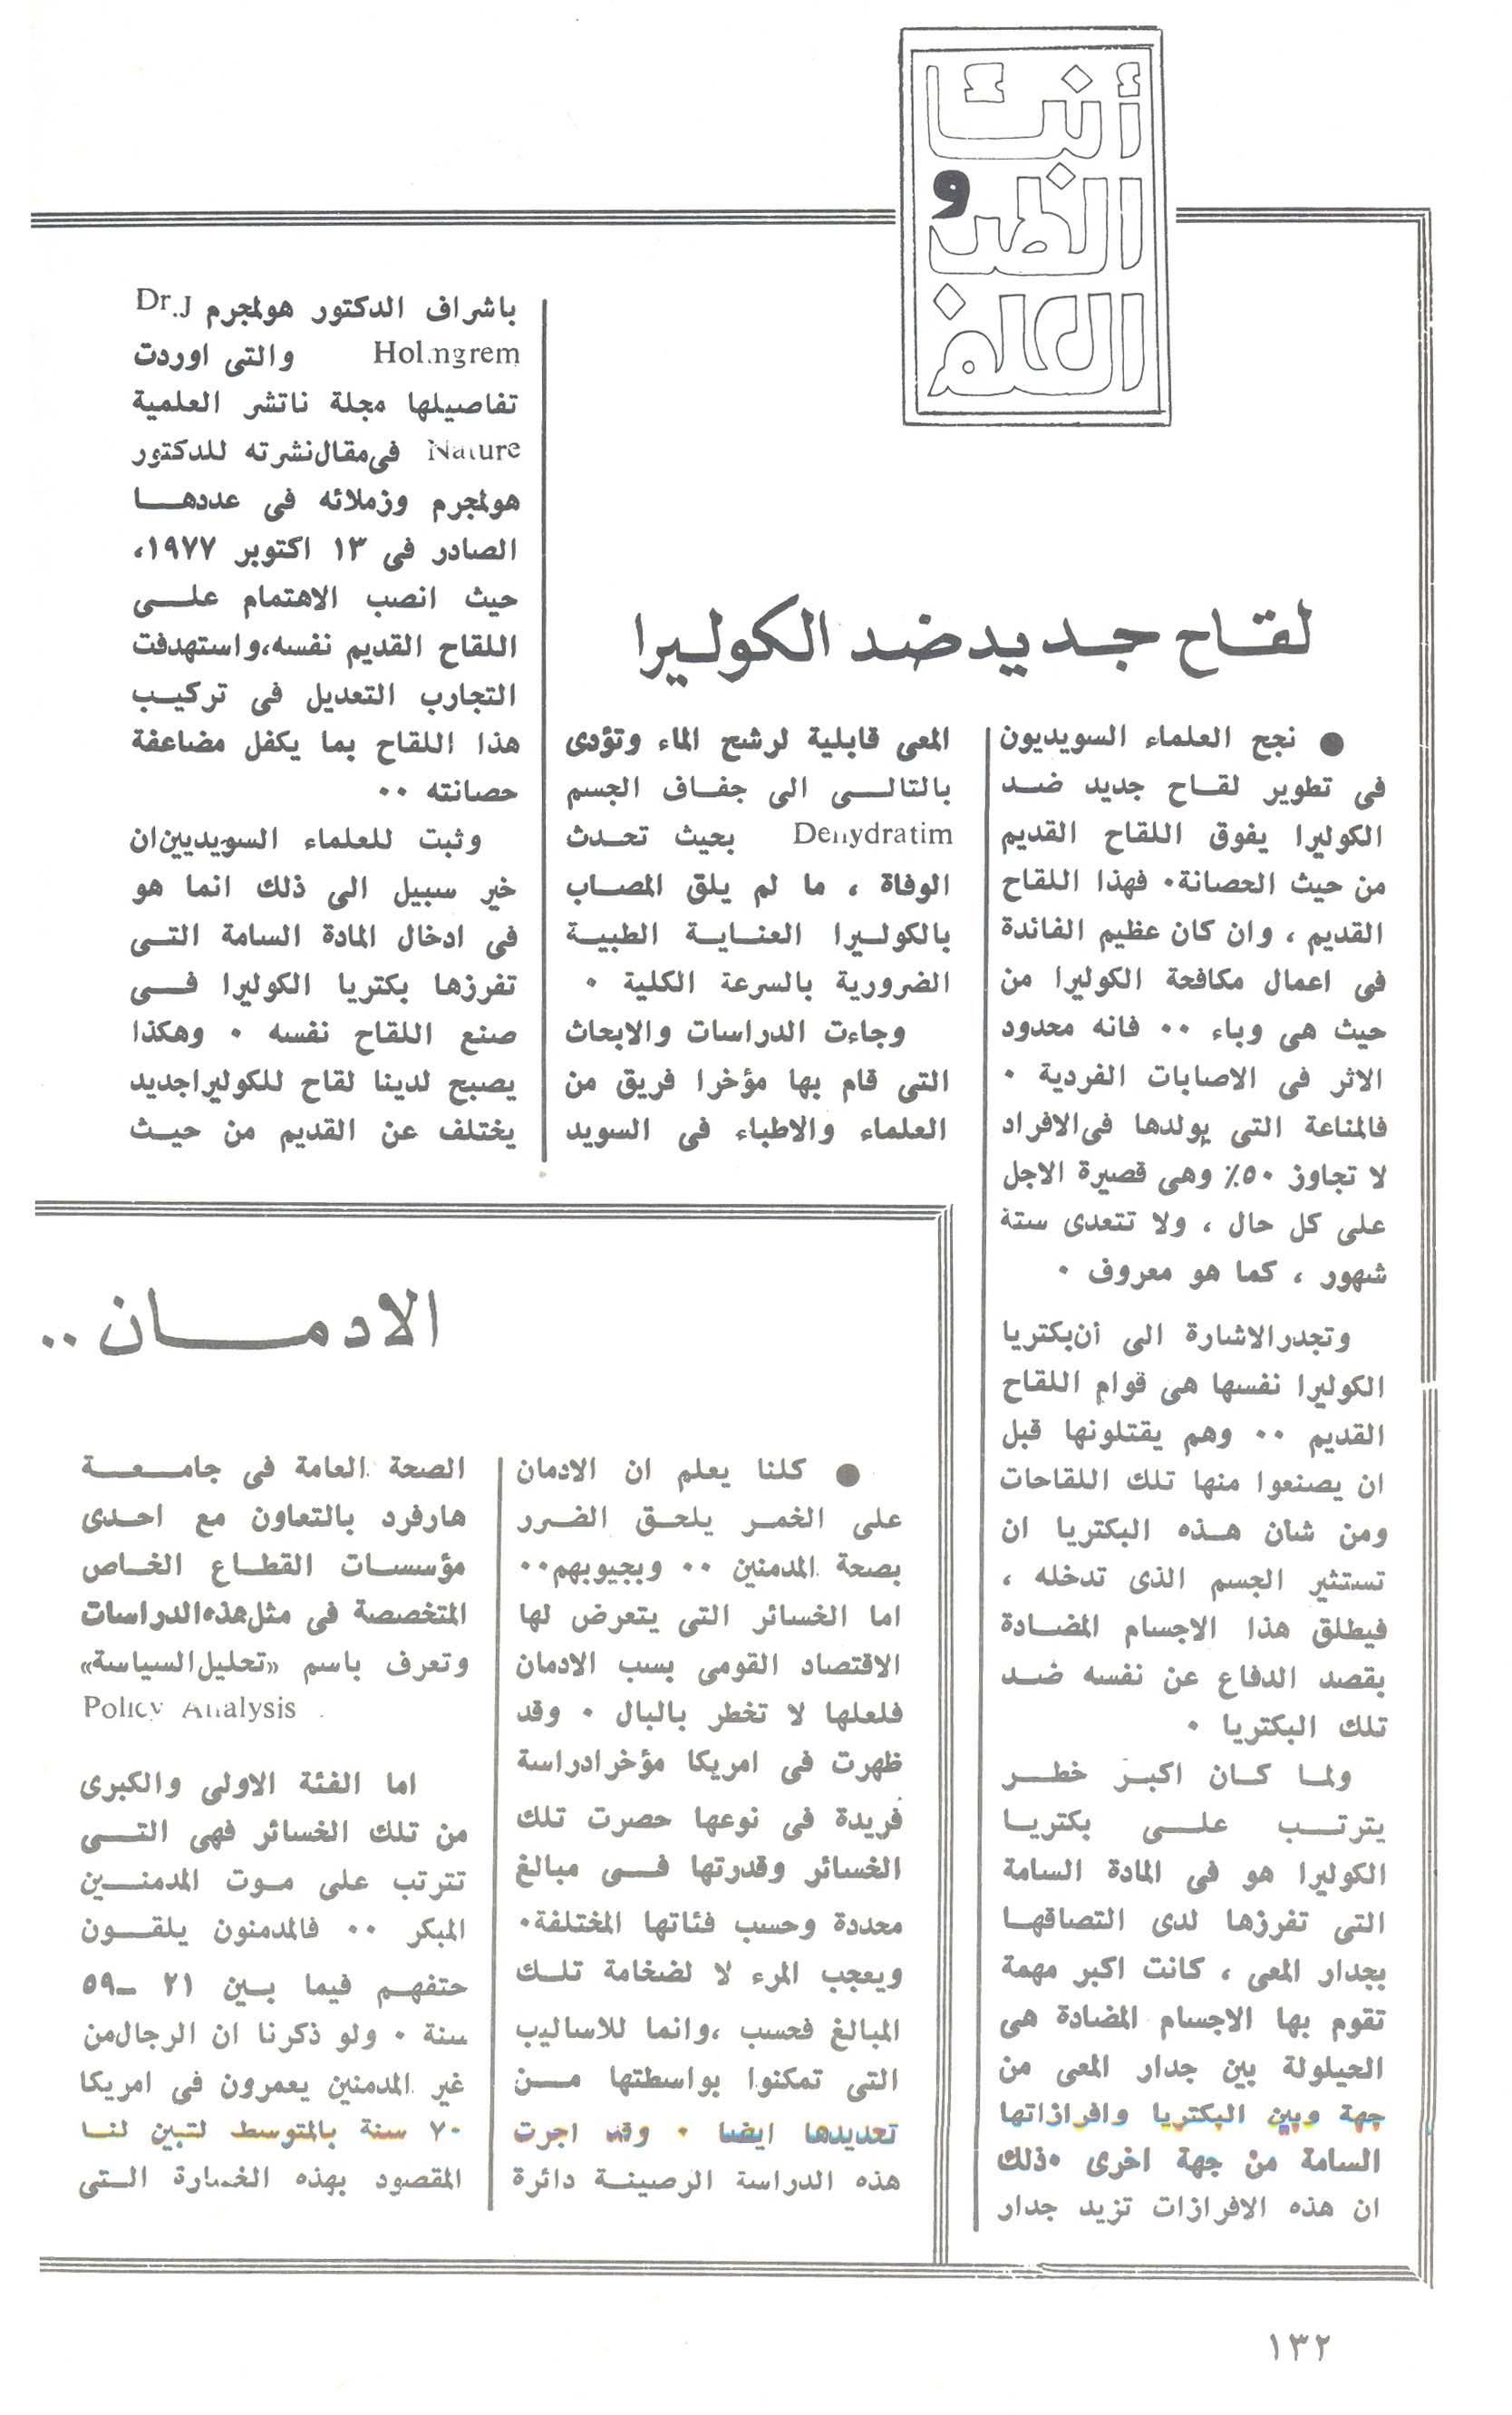 أنباء
الطب و
العلم
لقاح جديد ضد الكوليرا
● نجح العلماء السويديون
فى تطوير لقاح جديد ضد
الكوليرا يفوق اللقاح القديم
من حيث الحصانة٠ فهذا اللقاح
القديم ، وان كان عظيم الفائدة
فى اعمال مكافحة الكوليرا من
حيث هى وباء ٠٠ فانه محدود
الاثر فى الاصابات الفردية ٠
فالمناعة التى يولدها فى الافراد
لا تجاوز ٥٠٪ وهى قصيرة الاجل
على كل حال ، ولا تتعدى ستة
شهور ، كما هو معروف ٠
وتجدر الاشارة الى أن بكتريا
الكوليرا نفسها هى قوام اللقاح
القديم ٠٠ وهم يقتلونها قبل
ان يصنعوا منها تلك اللقاحات
ومن شان هذه البكتريا ان
تستثير الجسم الذى تدخله ،
فيطلق هذا الاجسام المضادة
بقصد الدفاع عن نفسه ضد
تلك البكتريا ٠
ولما كان اكبر خطر
يترتب على بكتريا
الكوليرا هو فى المادة السامة
التى تفرزها لدى التصاقها
بجدار المعى ، كانت اكبر مهمة
تقوم بها الاجسام المضادة هى
الحيلولة بين جدار المعى من
جهة وبين البكتريا وافرازاتها
السامة من جهة اخرى ٠ذلك
ان هذه الافرازات تزيد جدار
المعى قابلية لرشح الماء وتؤدى
بالتالى الى جفاف الجسم
Denydratim بحيث تحدث
الوفاة ، ما لم يلق المصاب
بالكوليرا العناية الطبية
الضرورية بالسرعة الكلية ٠
وجاءت الدراسات والابحاث
التى قام بها مؤخرا فريق من
العلماء والاطباء فى السويد
باشراف الدكتور هولمجرم Dr.J
Holmgrem والتى اوردت
تفاصيلها مجلة ناتشر العلمية
Nature فى مقال نشرته للدكتور
هولمجرم وزملائه فى عددها
الصادر فى ١٣ اكتوبر ١٩٧٧،
حيث انصب الاهتمام على
اللقاح القديم نفسه،واستهدفت
التجارب التعديل فى تركيب
هذا اللقاح بما يكفل مضاعفة
حصانته ٠٠
وثبت للعلماء السويديين ان
خير سبيل الى ذلك انما هو
فى ادخال المادة السامة التى
تفرزها بكتريا الكوليرا فى
صنع اللقاح نفسه ٠ وهكذا
يصبح لدينا لقاح للكوليرا جديد
يختلف عن القديم من حيث
الادمان ..
● كلنا يعلم ان الادمان
على الخمر يلحق الضرر
بصحة المدمنين ٠٠ وبجيوبهم٠٠
اما الخسائر التى يتعرض لها
الاقتصاد القومى بسب الادمان
فلعلها لا تخطر بالبال ٠ وقد
ظهرت فى امريكا مؤخرا دراسة
فريدة فى نوعها حصرت تلك
الخسائر وقدرتها فى مبالغ
محددة وحسب فئاتها المختلفة٠
ويعجب المرء لا لضخامة تلك
المبالغ فحسب ،وانما للاساليب
التى تمكنوا بواسطتها من
تعديدها ايضا ٠ وقد اجرت
هذه الدراسة الرصينة دائرة
الصحة العامة فى جامعة
هارفرد بالتعاون مع احدى
مؤسسات القطاع الخاص
المتخصصة فى مثل هذه الدراسات
وتعرف باسم «تحليل السياسة»
Policy Analysis .
اما الفئة الاولى والكبرى
من تلك الخسائر فهى التى
تترتب على موت المدمنين
المبكر ٠٠ فالمدمنون يلقون
حتفهم فيما بين ٢١ ـ٥٩
سنة ٠ ولو ذكرنا ان الرجال من
غير المدمنين يعمرون فى امريكا
٧٠ سنة بالمتوسط لتبين لنا
المقصود بهذه الخسارة التى
١٣٢